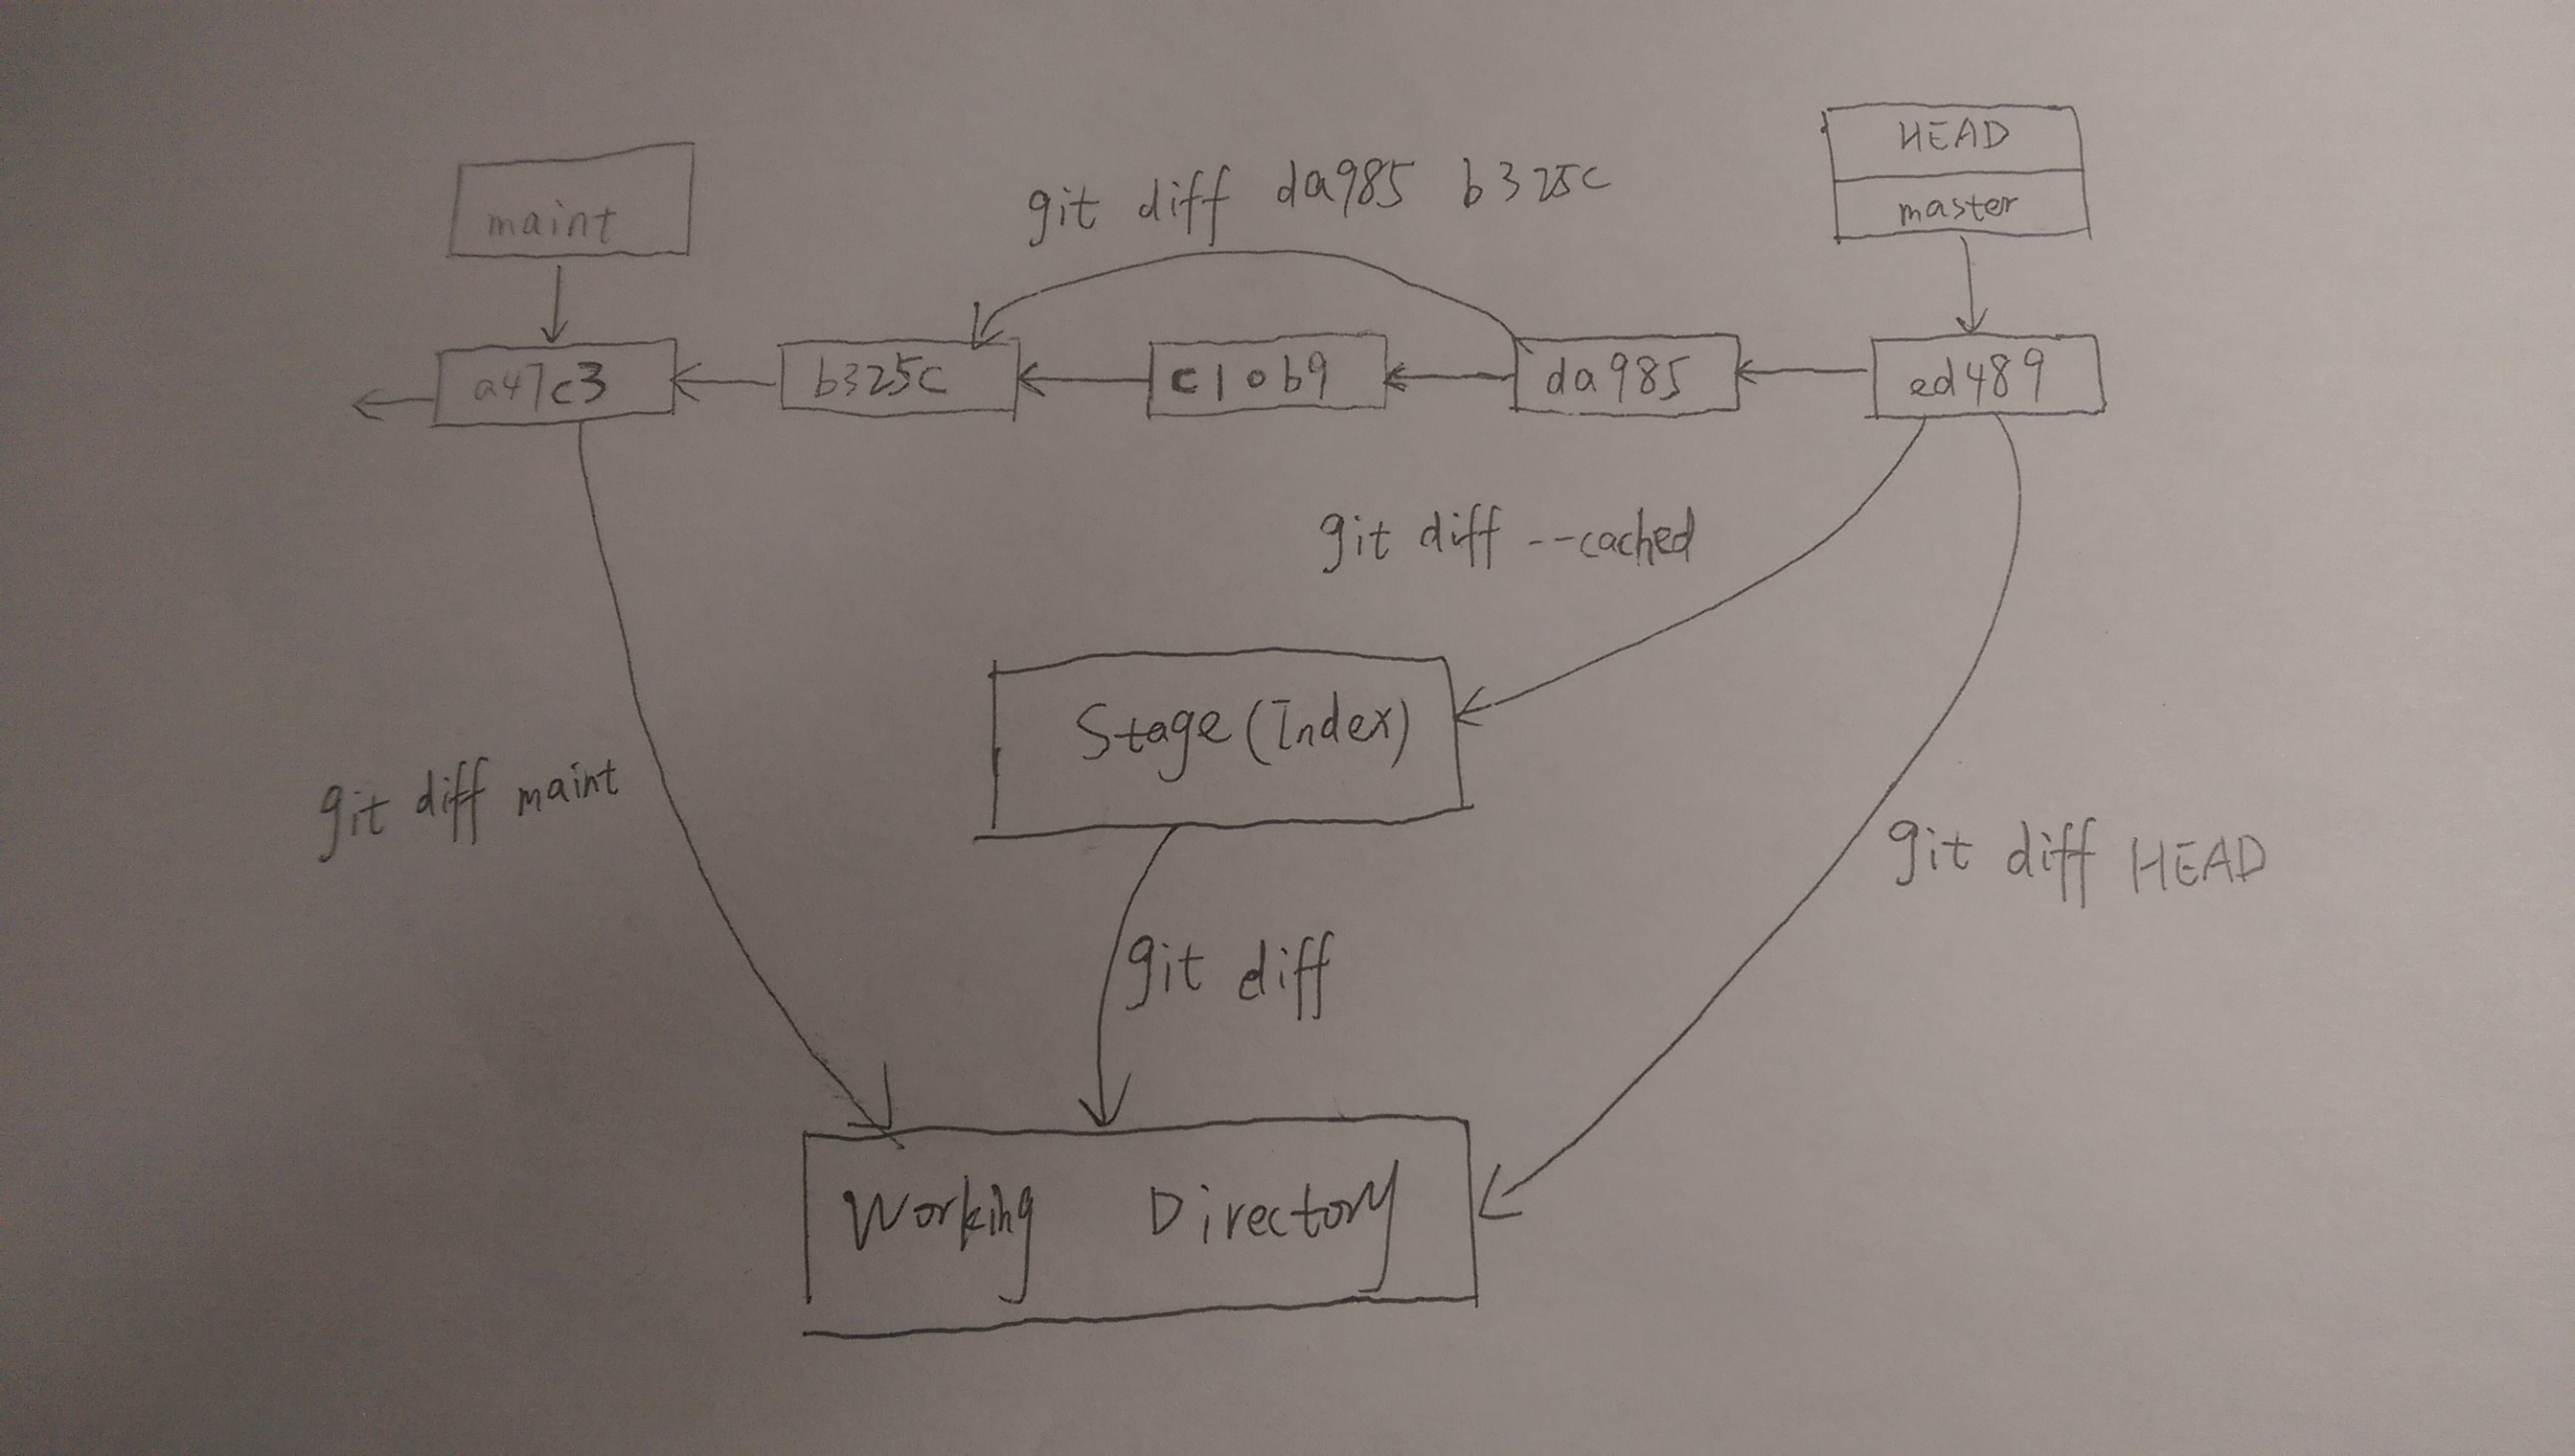 HEAD
maint
git diff da985 b325c
master
a47c3
b325c
c10b9
da985
ed489
git diff --cached
Stage (Index)
git diff maint
git diff HEAD
git diff
Working Directory